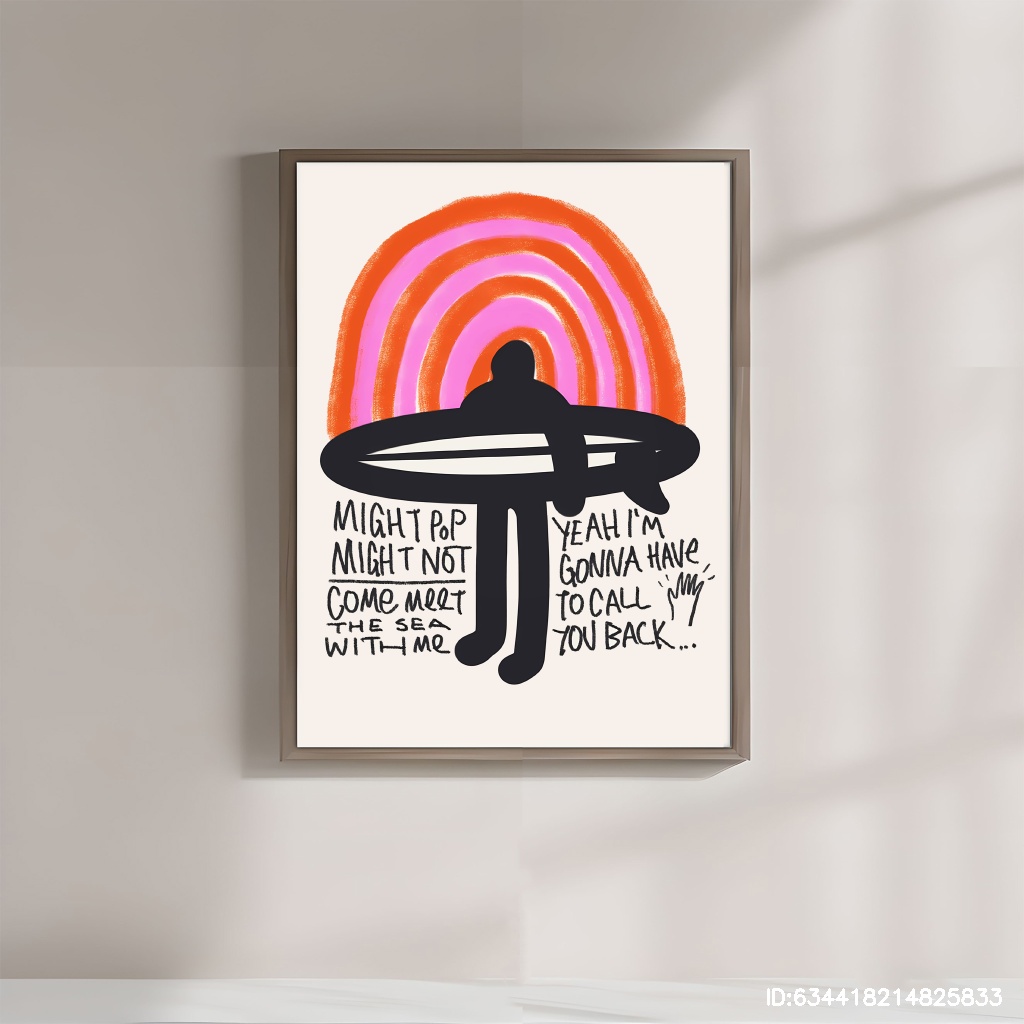 MIGHT POP
MIGHT NOT
COME MEET
THE SEA
WITH ME
YEAH I'M
GONNA HAVE
TO CALL
YOU BACK...
ID:634418214825833